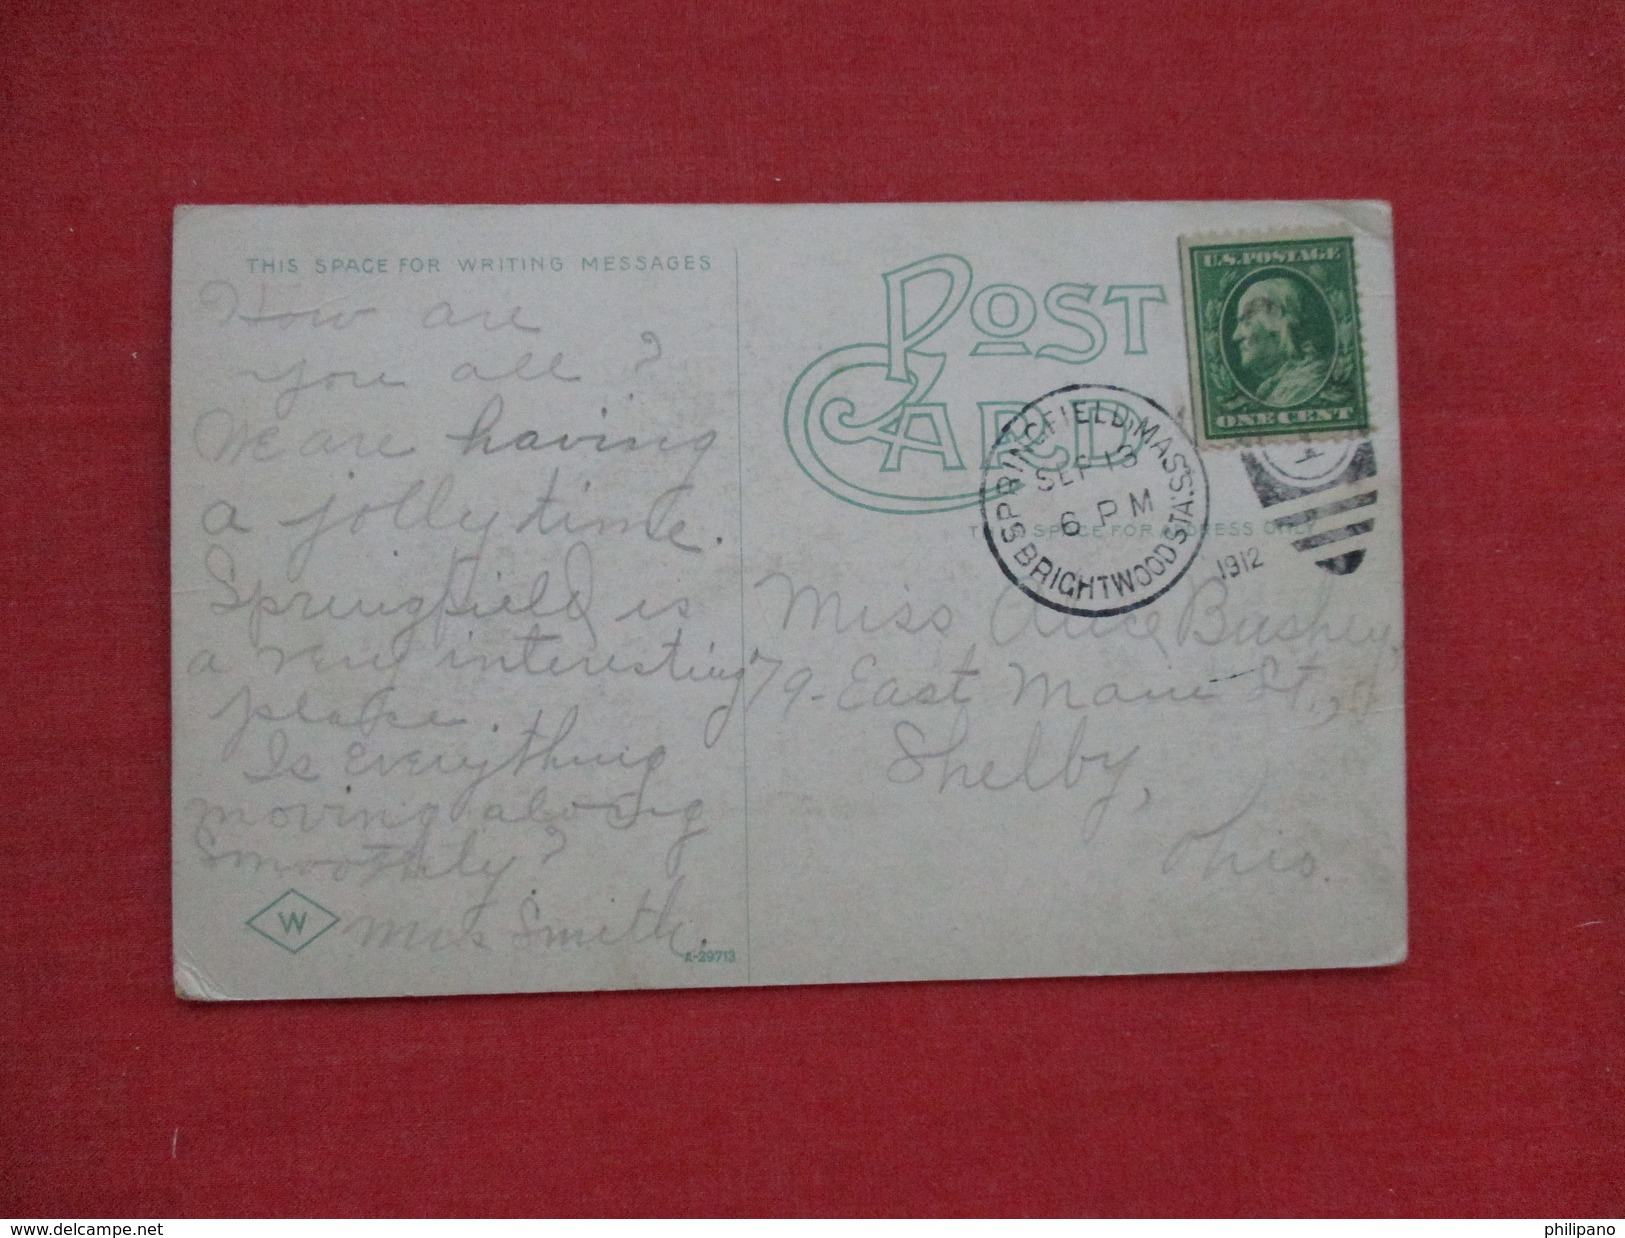 THIS SPACE FOR WRITING MESSAGES
How are
you all?
We are having
a jolly time.
Springfield is
a very interesting
place.
Is Everything
moving along
smoothly?
Mrs Smith.
W
A-29713
POST
CARD
U.S. POSTAGE
ONE CENT
SPRINGFIELD, MASS.
SEP 13
6 PM
1912
BRIGHTWOOD STA.
1
THIS SPACE FOR ADDRESS ONLY
Miss Alice Bushey,
79 - East Main St.,
Shelby,
Ohio.
www.delcampe.net
philipano